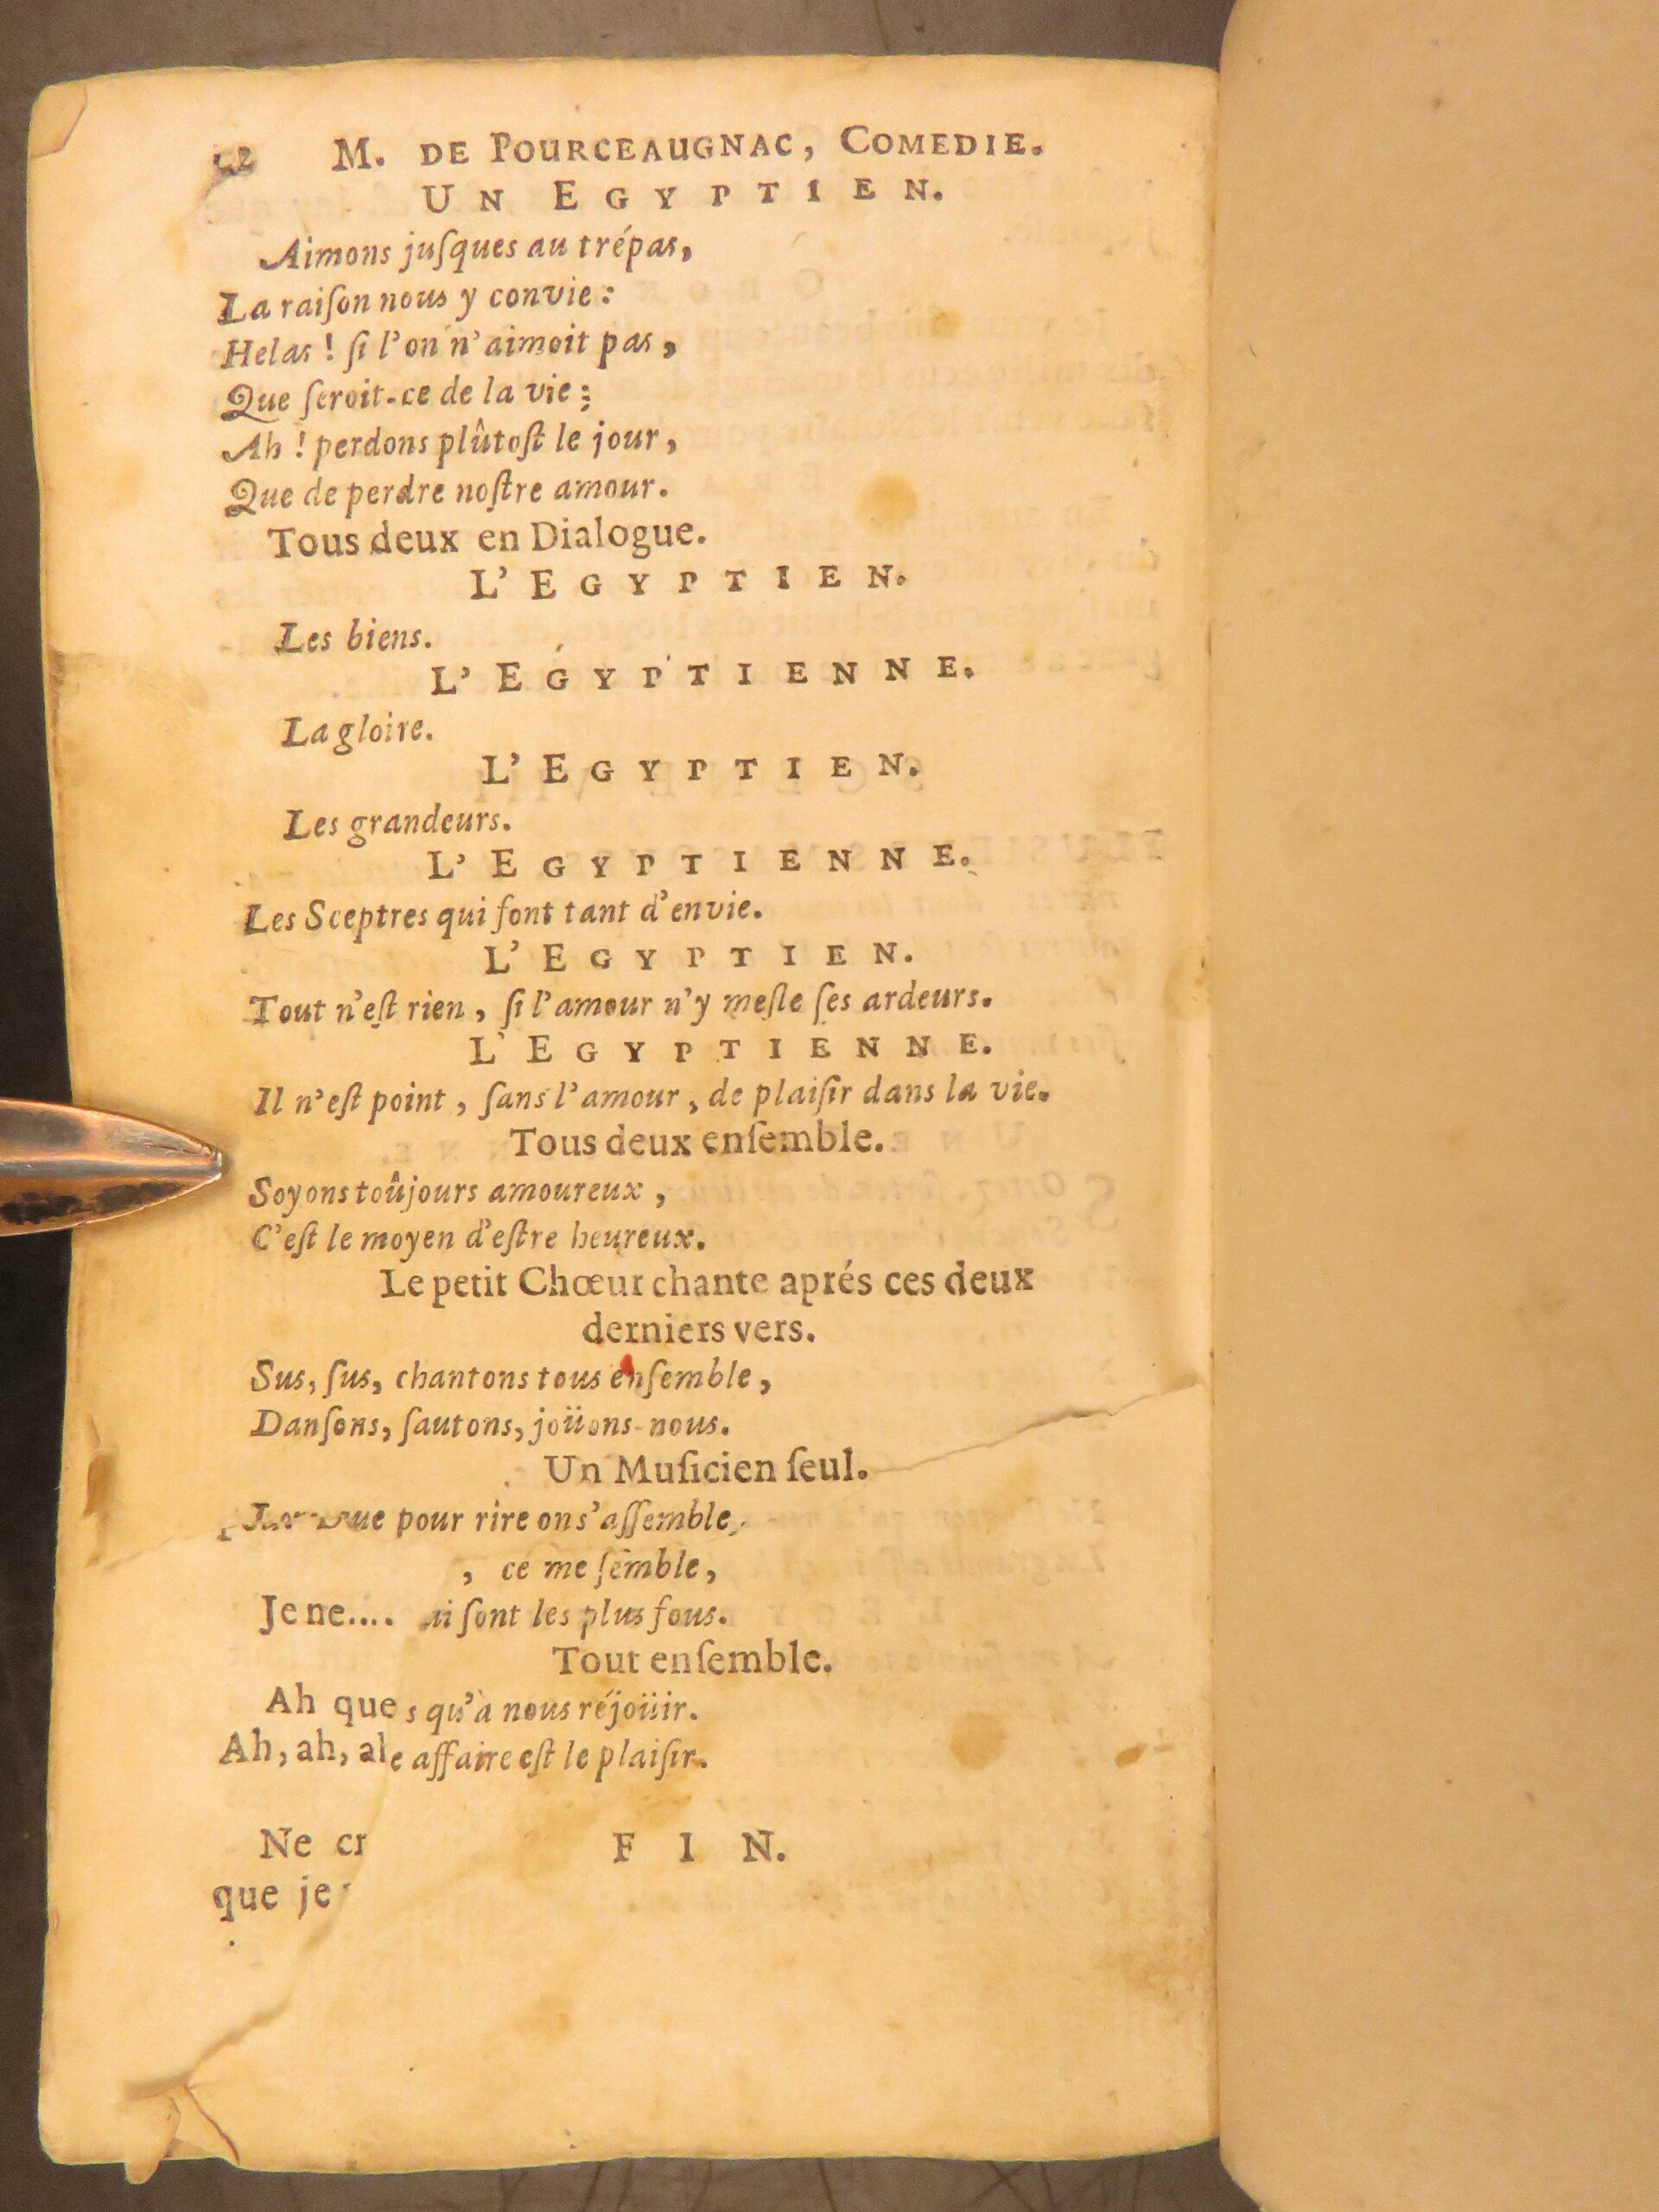 M. DE POURCEAUGNAC, COMEDIE.
UN EGYPTIEN.
Aimons juſques au trépas,
La raiſon nous y convie :
Helas ! ſi l'on n'aimoit pas,
Que ſeroit-ce de la vie ;
Ah ! perdons plûtoſt le jour,
Que de perdre noſtre amour.
Tous deux en Dialogue.
L'EGYPTIEN.
Les biens.
L'EGYPTIENNE.
La gloire.
L'EGYPTIEN.
Les grandeurs.
L'EGYPTIENNE.
Les Sceptres qui font tant d'envie.
L'EGYPTIEN.
Tout n'eſt rien, ſi l'amour n'y meſle ſes ardeurs.
L'EGYPTIENNE.
Il n'eſt point, ſans l'amour, de plaiſir dans la vie.
Tous deux enſemble.
Soyons toûjours amoureux,
C'eſt le moyen d'eſtre heureux.
Le petit Chœur chante aprés ces deux
derniers vers.
Sus, ſus, chantons tous enſemble,
Danſons, ſautons, joüons-nous.
Un Muſicien ſeul.
pour rire on s'aſſemble,
, ce me ſemble,
Je ne.... ſont les plus fous.
Tout enſemble.
Ah que s qu'à nous réjoüir.
Ah, ah, al e affaire eſt le plaiſir.
Ne cr FIN.
que je